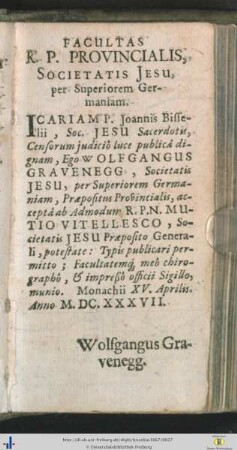 FACULTAS
R. P. PROVINCIALIS,
SOCIETATIS JESU,
per Superiorem Ger-
maniam.
ICARIAM P. Joannis Bisse-
lii, Soc. JESU Sacerdotis,
Censorum judiciô luce publicâ di-
gnam, Ego WOLFGANGUS
GRAVENEGG, Societatis
JESU, per Superiorem Germa-
niam, Præpositus Provincialis, ac-
ceptâ ab Admodum R.P.N. MU-
TIO VITELLESCO, So-
cietatis JESU Præposito Genera-
li, potestate: Typis publicari per-
mitto; Facultatemq́, meô chiro-
graphô, & impressô officii Sigillo,
munio. Monachii XV. Aprilis.
Anno M. DC. XXXVII.
Wolfgangus Gra-
venegg.